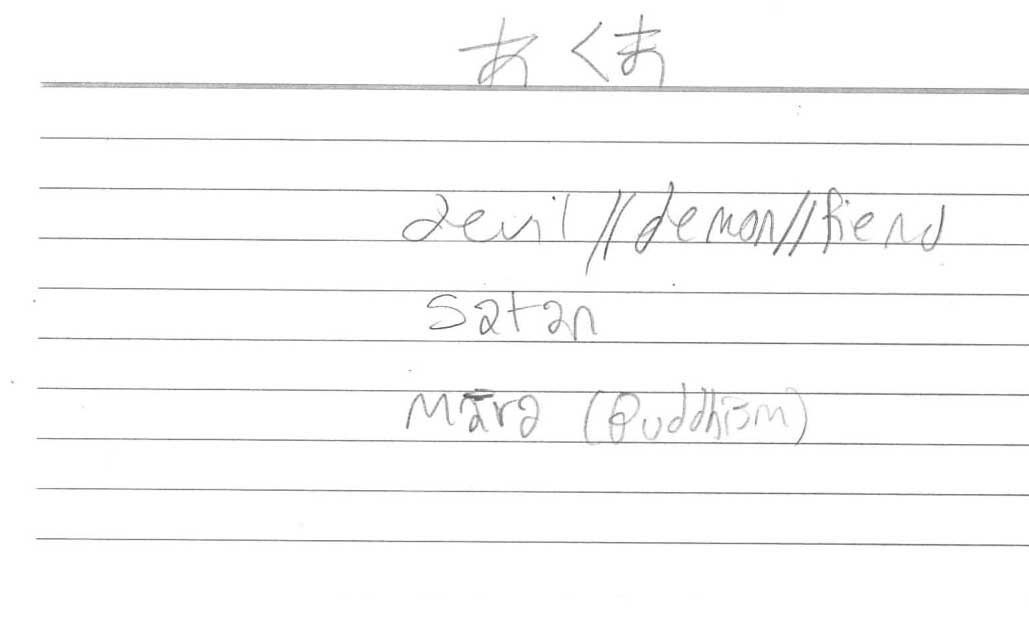 あくま
devil//demon//fiend
Satan
Māra (Buddhism)